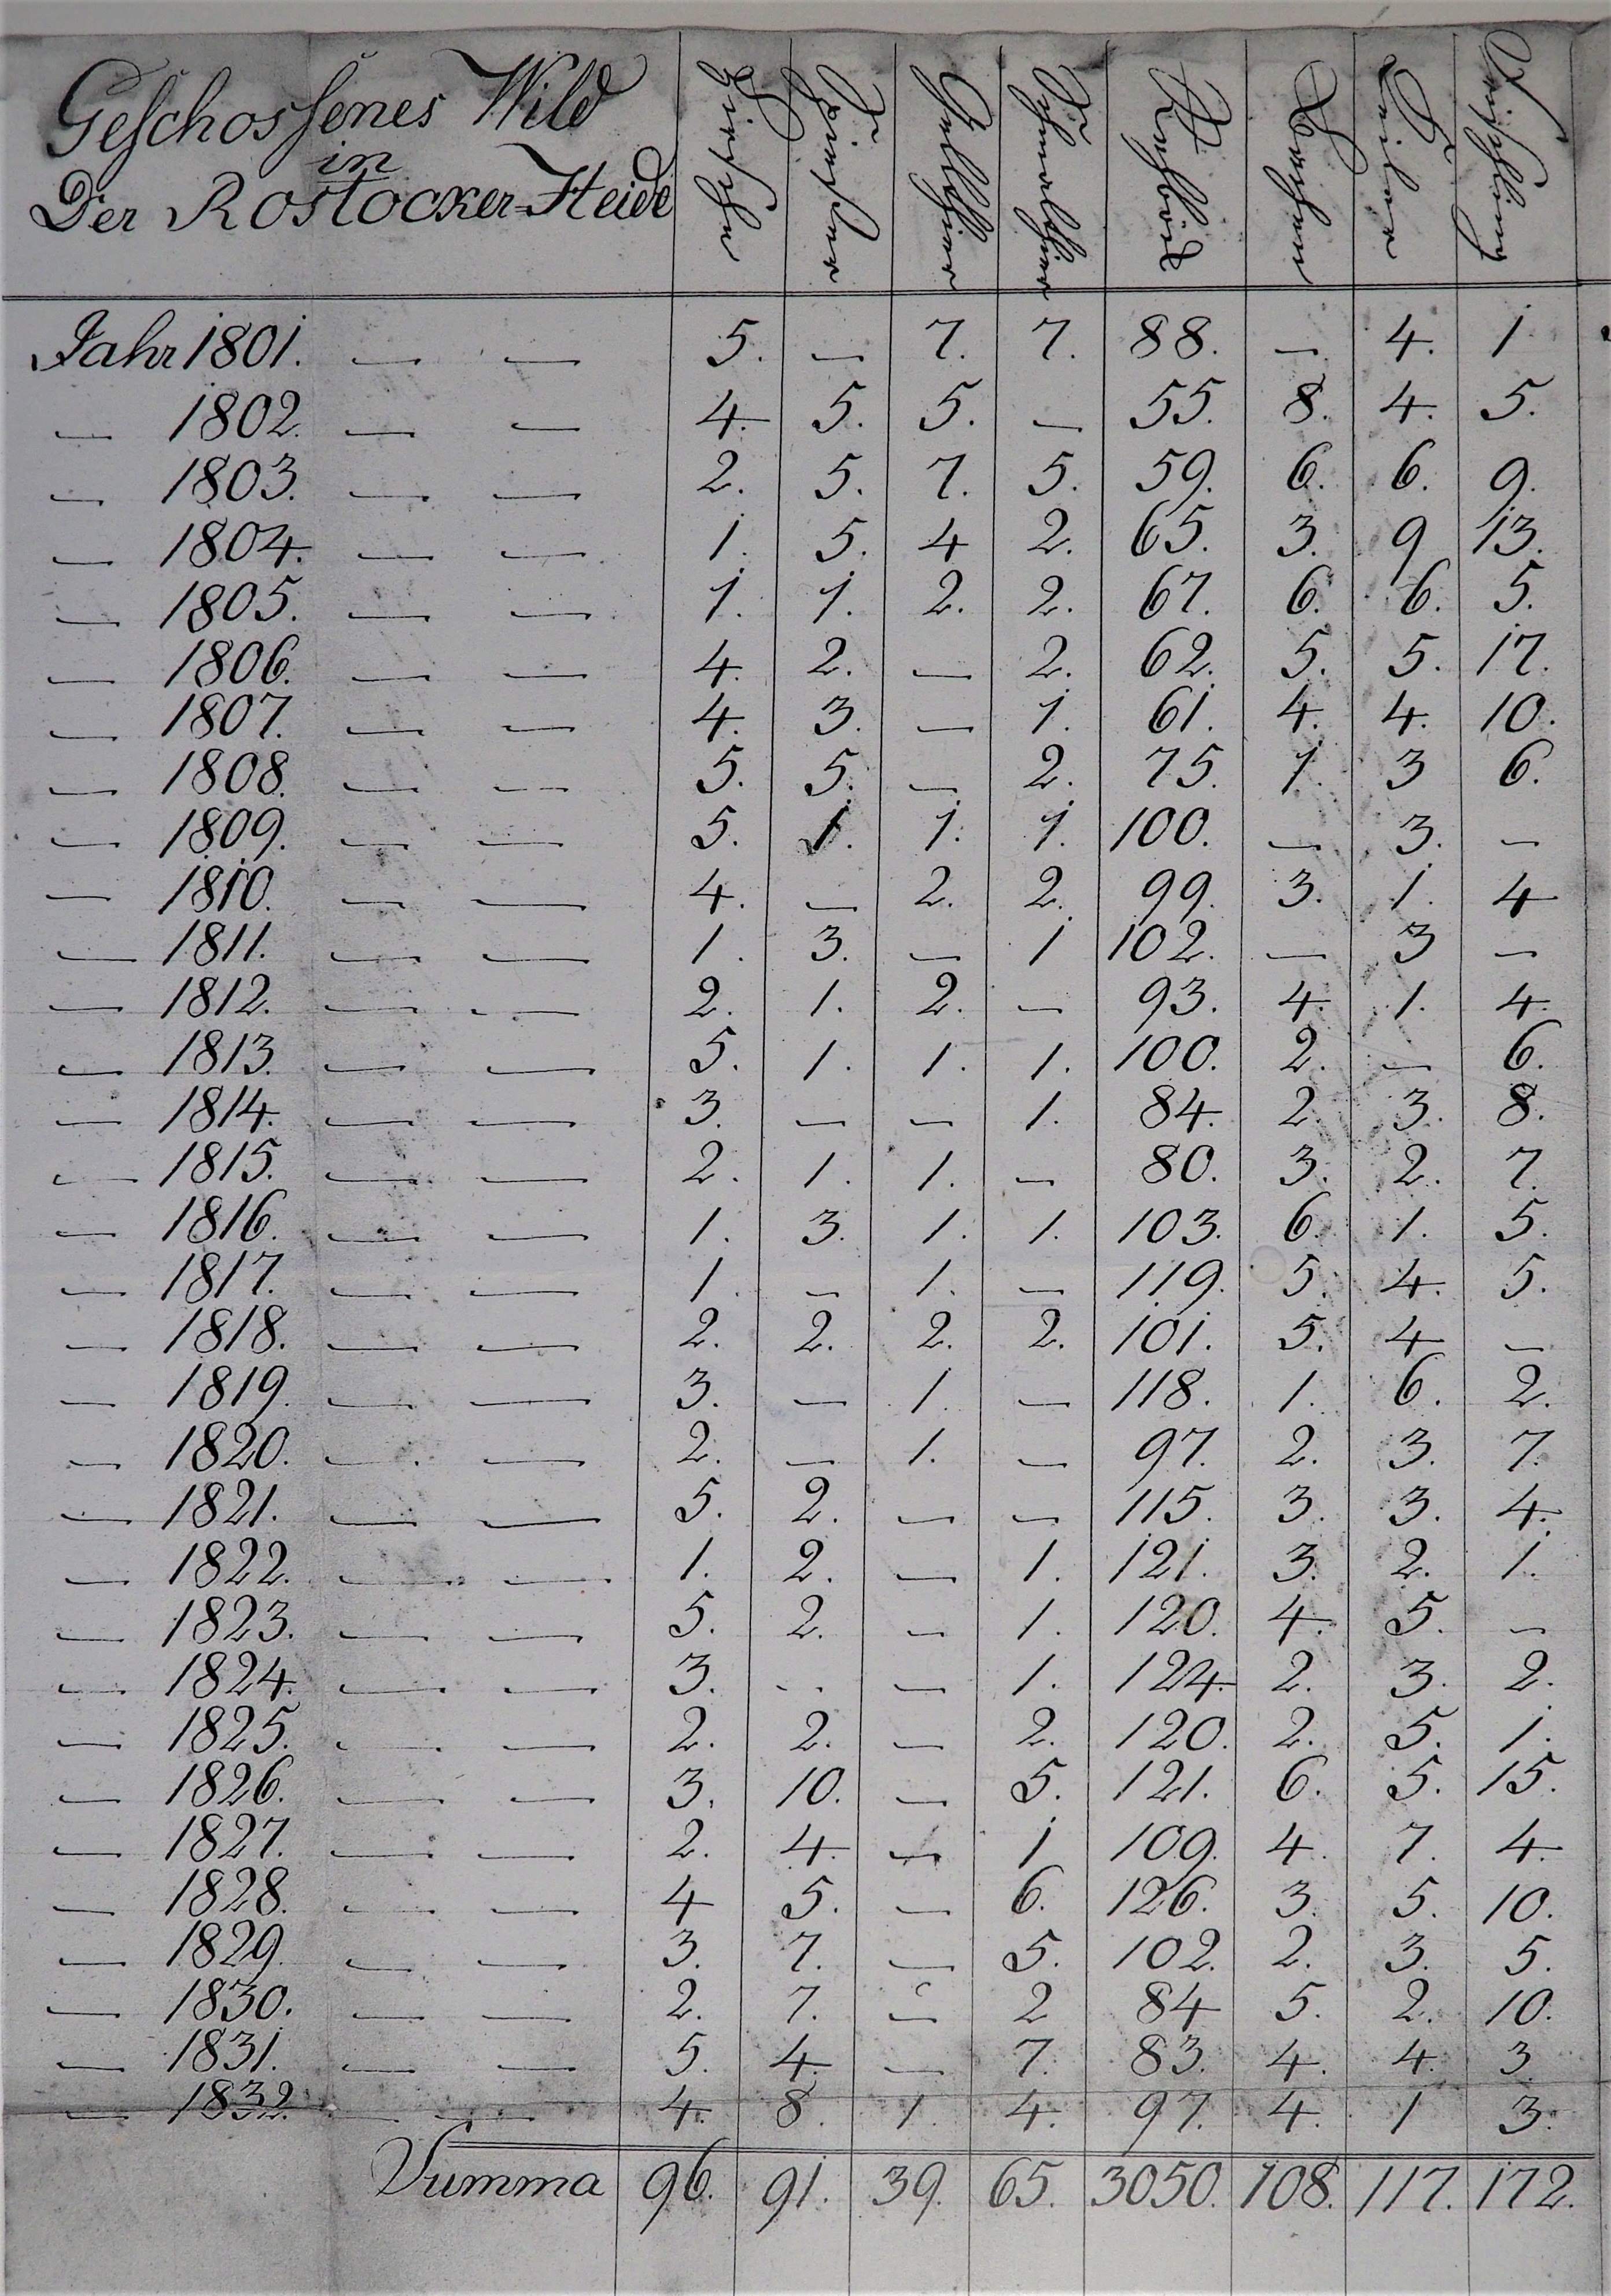 Geschossenes Wild
in
Der Rostocker-Heide
Hirsche Spiesser Geltthier Schmalthier Rehböcke Bachen Keiler Frischling
Jahr 1801. — — 5. — 7. 7. 88. — 4. 1
— 1802. — — 4. 5. 5. — 55. 8. 4. 5.
— 1803. — — 2. 5. 7. 5. 59. 6. 6. 9.
— 1804. — — 1. 5. 4 2. 65. 3. 9 13.
— 1805. — — 1. 1. 2. 2. 67. 6. 6. 5.
— 1806. — — 4. 2. — 2. 62. 5. 5. 17.
— 1807. — — 4. 3. — 1. 61. 4. 4. 10.
— 1808. — — 5. 5. — 2. 75. 1. 3 6.
— 1809. — — 5. 1. 1. 1. 100. — 3. —
— 1810. — — 4. — 2. 2. 99. 3. 1. 4
— 1811. — — 1. 3. — 1 102. — 3 —
— 1812. — — 2. 1. 2. — 93. 4. 1. 4.
— 1813. — — 5. 1. 1. 1. 100. 2. — 6.
— 1814. — — 3. — — 1. 84. 2. 3. 8.
— 1815. — — 2. 1. 1. — 80. 3. 2. 7.
— 1816. — — 1. 3. 1. 1. 103. 6. 1. 5.
— 1817. — — 1. — 1. — 119. 5. 4. 5.
— 1818. — — 2. 2. 2. 2. 101. 5. 4 —
— 1819. — — 3. — 1. — 118. 1. 6. 2.
— 1820. — — 2. — 1. — 97. 2. 3. 7.
— 1821. — — 5. 2. — — 115. 3. 3. 4.
— 1822. — — 1. 2. — 1. 121. 3. 2. 1.
— 1823. — — 5. 2. — 1. 120. 4. 5. —
— 1824. — — 3. — — 1. 124. 2. 3. 2.
— 1825. — — 2. 2. — 2. 120. 2. 5. 1.
— 1826. — — 3. 10. — 5. 121. 6. 5. 15.
— 1827. — — 2. 4. — 1 109. 4. 7. 4.
— 1828. — — 4 5. — 6. 126. 3. 5. 10.
— 1829. — — 3. 7. — 5. 102. 2. 3. 5.
— 1830. — — 2. 7. — 2 84 5. 2. 10.
— 1831. — — 5. 4. — 7. 83. 4. 4. 3
— 1832. — — 4. 8. 1. 4. 97. 4. 1 3.
Summa 96. 91. 39. 65. 3050. 108. 117. 172.